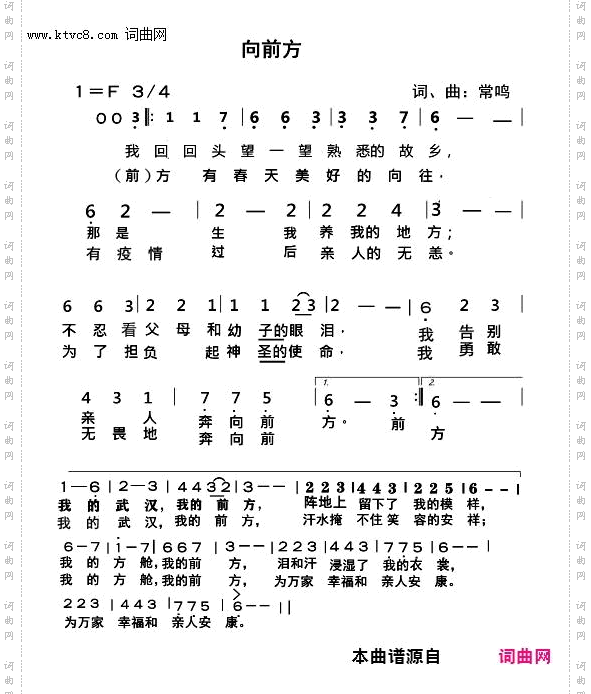 www.ktvc8.com 词曲网
向前方
1=F 3/4
词、曲：常鸣
0 0 3 ‖: 1 1 7 | 6 6 3 | 3 3 7 | 6 — — |
我回回头望一望熟悉的故乡，
（前）方 有春天美好的向往.
6 2 — | 2 — 2 | 2 2 4 | 3 — — |
那是 生 我养我的地方；
有疫情 过 后亲人的无恙。
6 6 3 | 2 2 1 | 1 1 2 3 | 2 — — | 6 2 3 |
不忍看父母和幼子的眼泪， 我告别
为了担负 起神圣的使命， 我勇敢
1. 2.
4 3 1 | 7 7 5 | 6 — 3 :‖ 6 — — |
亲 人 奔向前 方。 前
无畏地 奔向前 方
1—6 | 2—3 | 4 4 3 2 | 3—— | 2 2 3 | 4 4 3 | 2 2 5 | 6——
我的武汉，我的前方， 阵地上 留下了 我的模样，
我的武汉，我的前方， 汗水掩 不住笑 容的安祥；
6—7 | 1—7 | 6 6 7 | 3—— | 2 2 3 | 4 4 3 | 7 7 5 | 6——
我的方舱，我的前方， 泪和汗 浸湿了 我的衣裳，
我的方舱，我的前方， 为万家 幸福和 亲人安康。
2 2 3 | 4 4 3 | 7 7 5 | 6—— ‖
为万家 幸福和 亲人安 康。
本曲谱源自 词曲网
词曲网